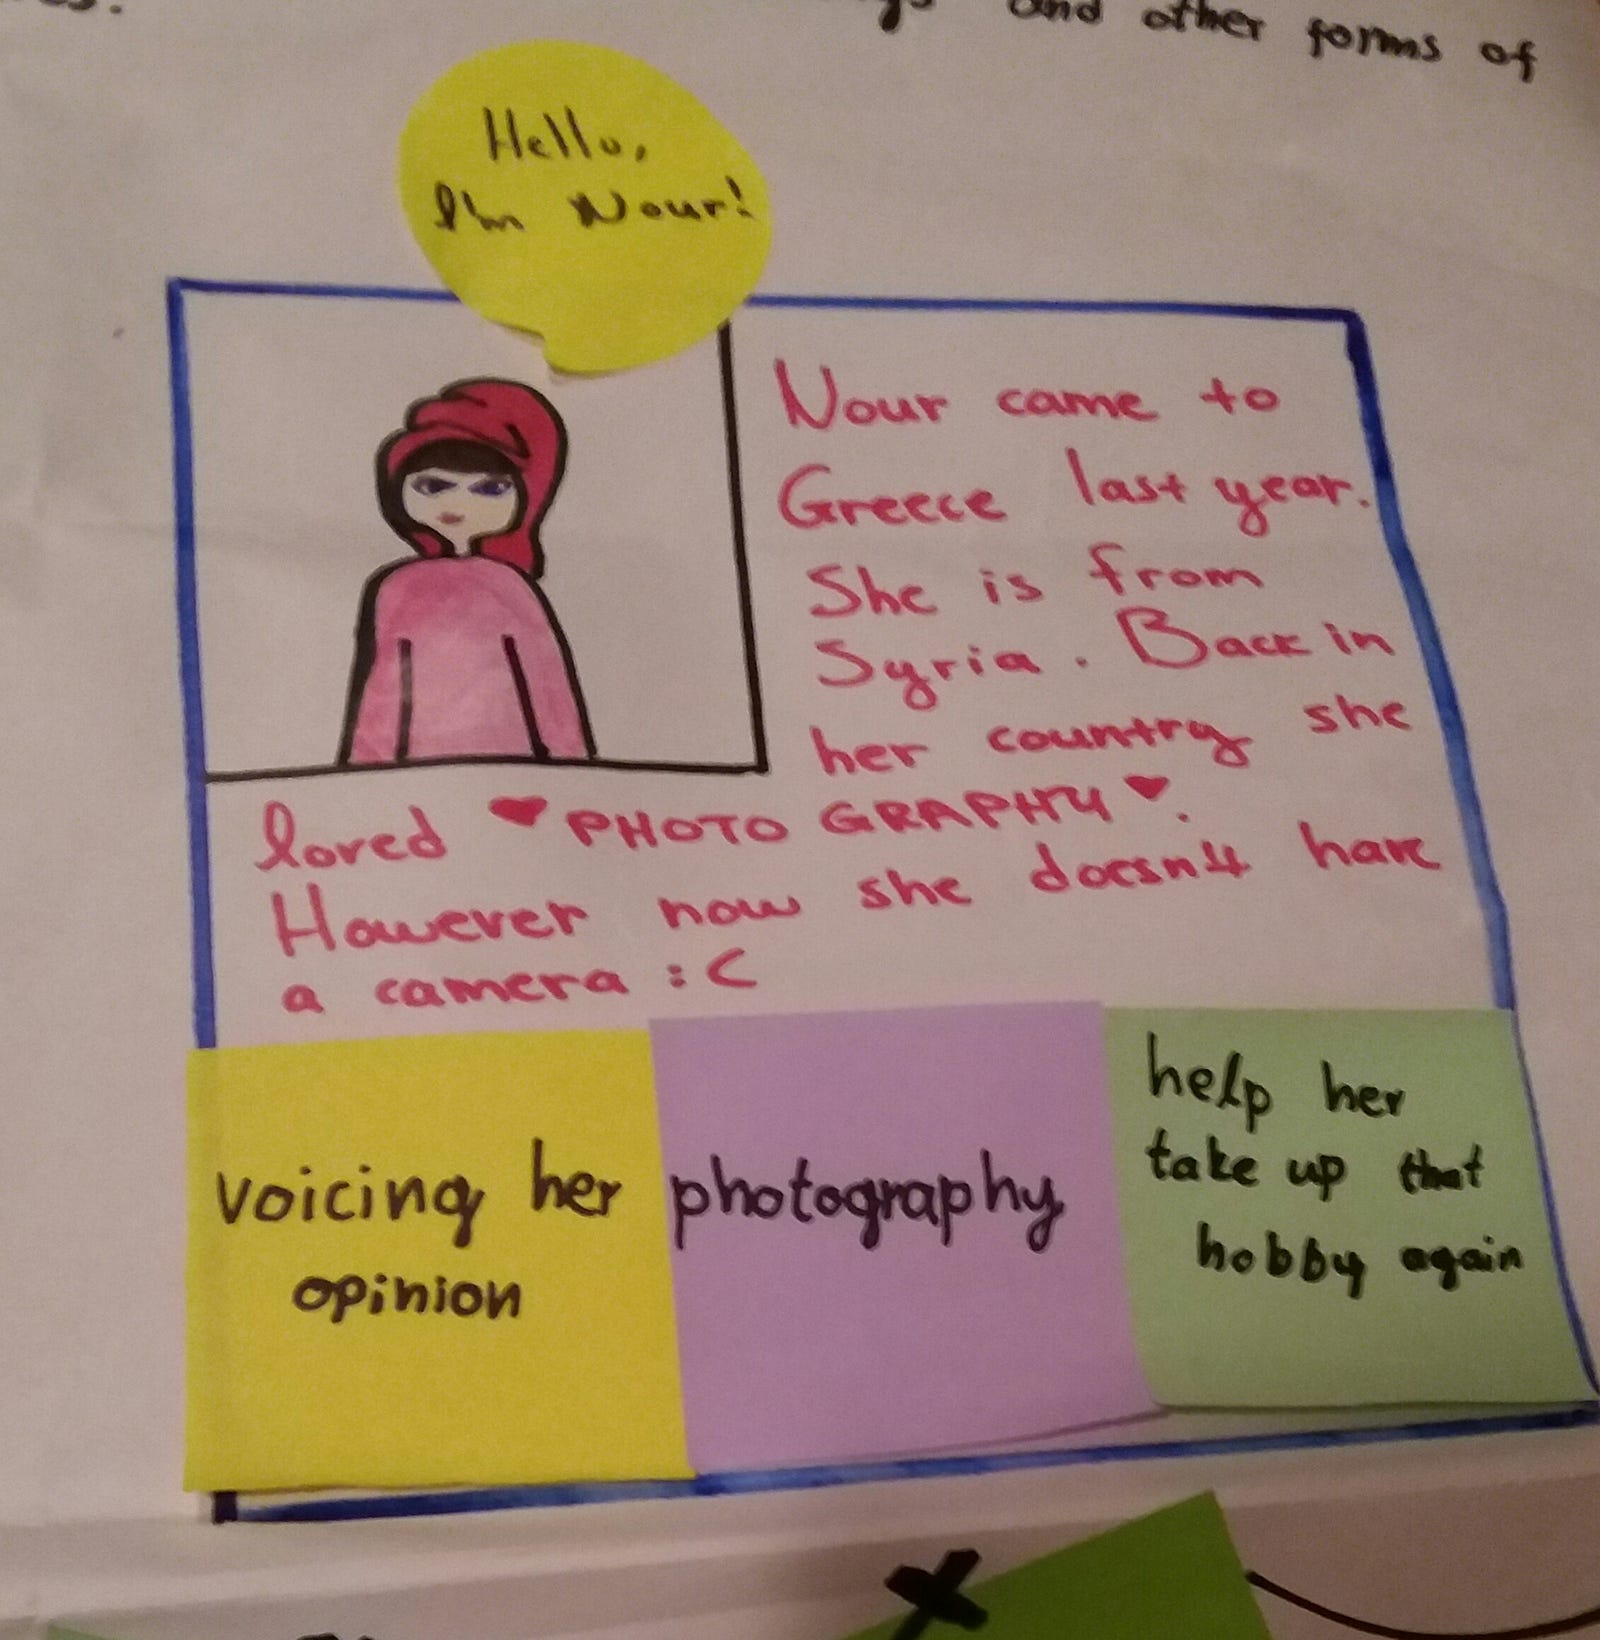 and other forms of
Hello,
I'm Nour!
Nour came to
Greece last year.
She is from
Syria. Back in
her country she
loved ♥ PHOTOGRAPHY ♥.
However now she doesn't have
a camera :C
voicing her
opinion
photography
help her
take up that
hobby again